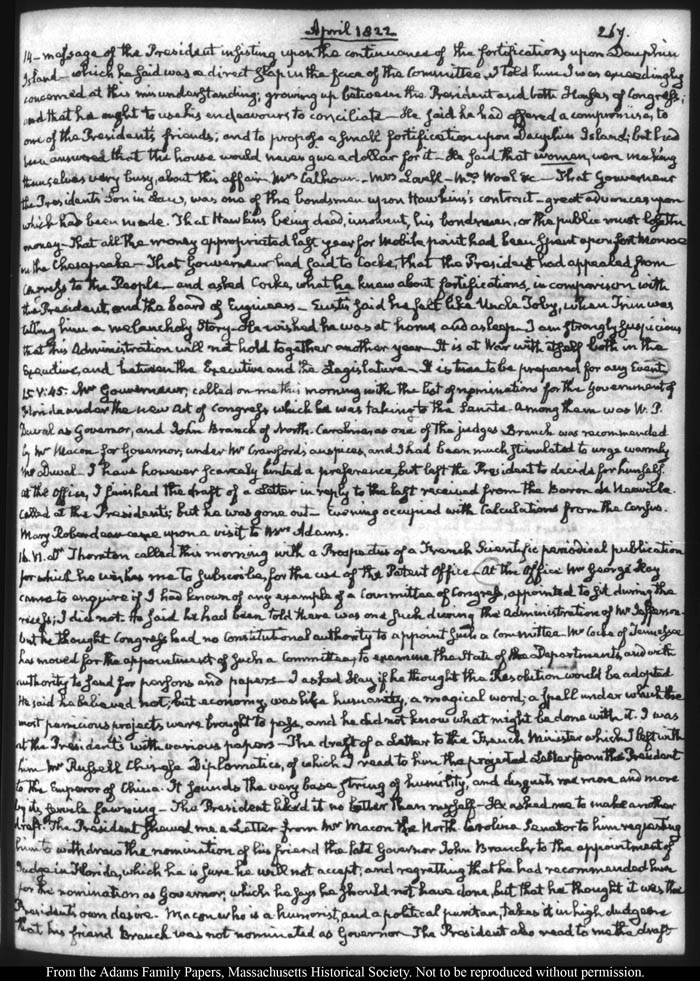 April 1822
267.
14 – message of the President insisting upon the continuance of the fortifications upon Dauphin
Island – which he said was a direct slap in the face of the Committee. I told him I was exceedingly
concerned at this misunderstanding, growing up between the President and both Houses of Congress;
and that he ought to use his endeavours to conciliate – He said he had offered a compromise, to
one of the President's friends; and to propose a small fortification upon Dauphin Island; but had
been answered that the house would never give a dollar for it – He said that women, were making
themselves very busy, about this affair. Mrs Calhoun – Mrs – Mrs Wool &c – That Gouverneur
the President's Son in Law, was one of the bondsmen upon Hawkins's contract – great advances upon
which had been made. That Hawkins being dead, insolvent, his bondsmen, or the public must lose the
money – That all the money appropriated last year for Mobile point had been spent upon fort Monroe
in the Chesapeake – That Gouverneur had said to Cocke, that the President had appealed from
Congress to the People – and asked Cocke, what he knew about fortifications, in comparison with
the President, and the board of Engineers – Eustis said he felt like Uncle Toby, when Trim was
telling him a melancholy Story – He wished he was at home and asleep. I am strongly suspicious
that this Administration will not hold together another year. It is at War with itself both in the
Executive, and between the Executive and the Legislature – It is time to be prepared for any Event.
15. V:45. Mr Gouverneur, called on me this morning with the list of nominations for the Government of
Florida under the new Act of Congress which he was taking to the Senate. Among them was W. P.
Duval as Governor, and John Branch of North-Carolina, as one of the judges. Branch was recommended
by Mr Macon for Governor, under Mr Crawford's auspices, and I had been much stimulated to urge warmly
Mr Duval. I have however scarcely hinted a preference, but left the President to decide for himself.
At the Office, I finished the draft of a Letter in reply to the last received from the Baron de Neuville.
Called at the President's; but he was gone out – Evening occupied with Calculations from the Census.
Mary Roberdeau came upon a visit to Mrs Adams.
16. VI. Dr Thornton called this morning with a Prospectus of a French Scientific periodical publication
for which he wishes me to subscribe, for the use of the Patent Office – At the Office Mr George Hay
came to enquire if I had known of any example of a Committee of Congress, appointed to sit during the
recess; I did not. He said he had been told there was one such during the Administration of Mr Jefferson –
but he thought Congress had no Constitutional authority to appoint such a Committee. Mr Cocke of Tennessee
has moved for the appointment of such a Committee, to examine the State of the Departments, and with
authority to send for persons and papers – I asked Hay if he thought the Resolution would be adopted
He said he believed not; but economy was like humanity, a magical word; a spell under which the
most pernicious projects were brought to pass, and he did not know what might be done with it. I was
at the President's with various papers – The draft of a Letter to the French Minister which I left with
him Mr Russell Diplomatics, of which I read to him the projected Letter from the President
to the Emperor of China. It sounds the very base string of humility, and disgusts me more and more
by its servile fawning – The President liked it no better than myself – He asked me to make another
draft. The President shewed me a Letter from Mr Macon the North Carolina Senator to him requesting
him to withdraw the nomination of his friend the late Governor John Branch, to the appointment of
Judge in Florida, which he is sure he will not accept; and regretting that he had recommended him
for the nomination as Governor, which he says he should not have done, but that he thought it was the
President's own desire. Macon who is a humorist, and a political puritan, takes it in high dudgeon
that his friend Branch was not nominated as Governor – The President also read to me the draft
From the Adams Family Papers, Massachusetts Historical Society. Not to be reproduced without permission.